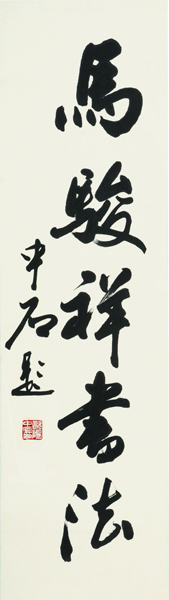 馬駿祥书法
中石題